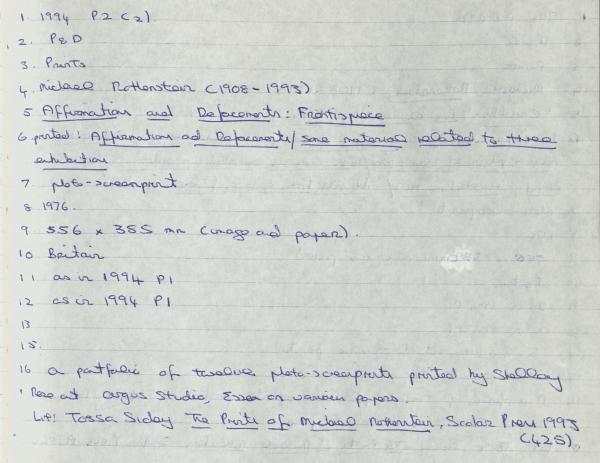 1. 1994 P.2 (2)
2. P&D
3. Prints
4. Michael Rothenstein (1908-1993).
5 Affirmations and Defacements: Frontispiece
6 printed: Affirmations and Defacements/some material related to three
exhibition
7 photo-screenprint
8 1976.
9 556 x 355 mm (image and paper).
10 Britain
11 as in 1994 P1
12 as in 1994 P1
13
15.
16 a portfolio of twelve photo-screenprints printed by Shelley
Rose at Argus Studio, Essex on various papers.
Lit: Tessa Sidey The Prints of Michael Rothenstein, Scolar Press 1993
(425)